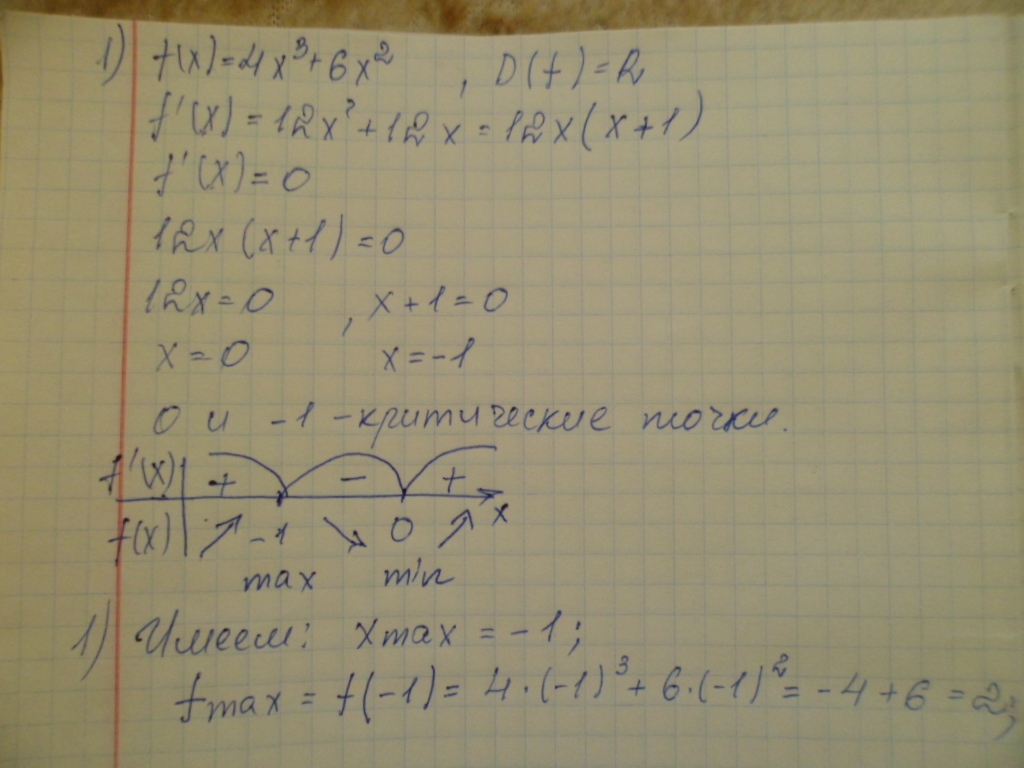 1) f(x)=4x³+6x² , D(f)=R
f'(x)=12x²+12x=12x(x+1)
f'(x)=0
12x(x+1)=0
12x=0 , x+1=0
x=0 x=-1
0 и -1 - критические точки.
f'(x) + - + x
f(x) ↗ -1 ↘ 0 ↗
max min
1) Имеем: xmax = -1;
fmax = f(-1) = 4·(-1)³+6·(-1)²= -4+6=2;